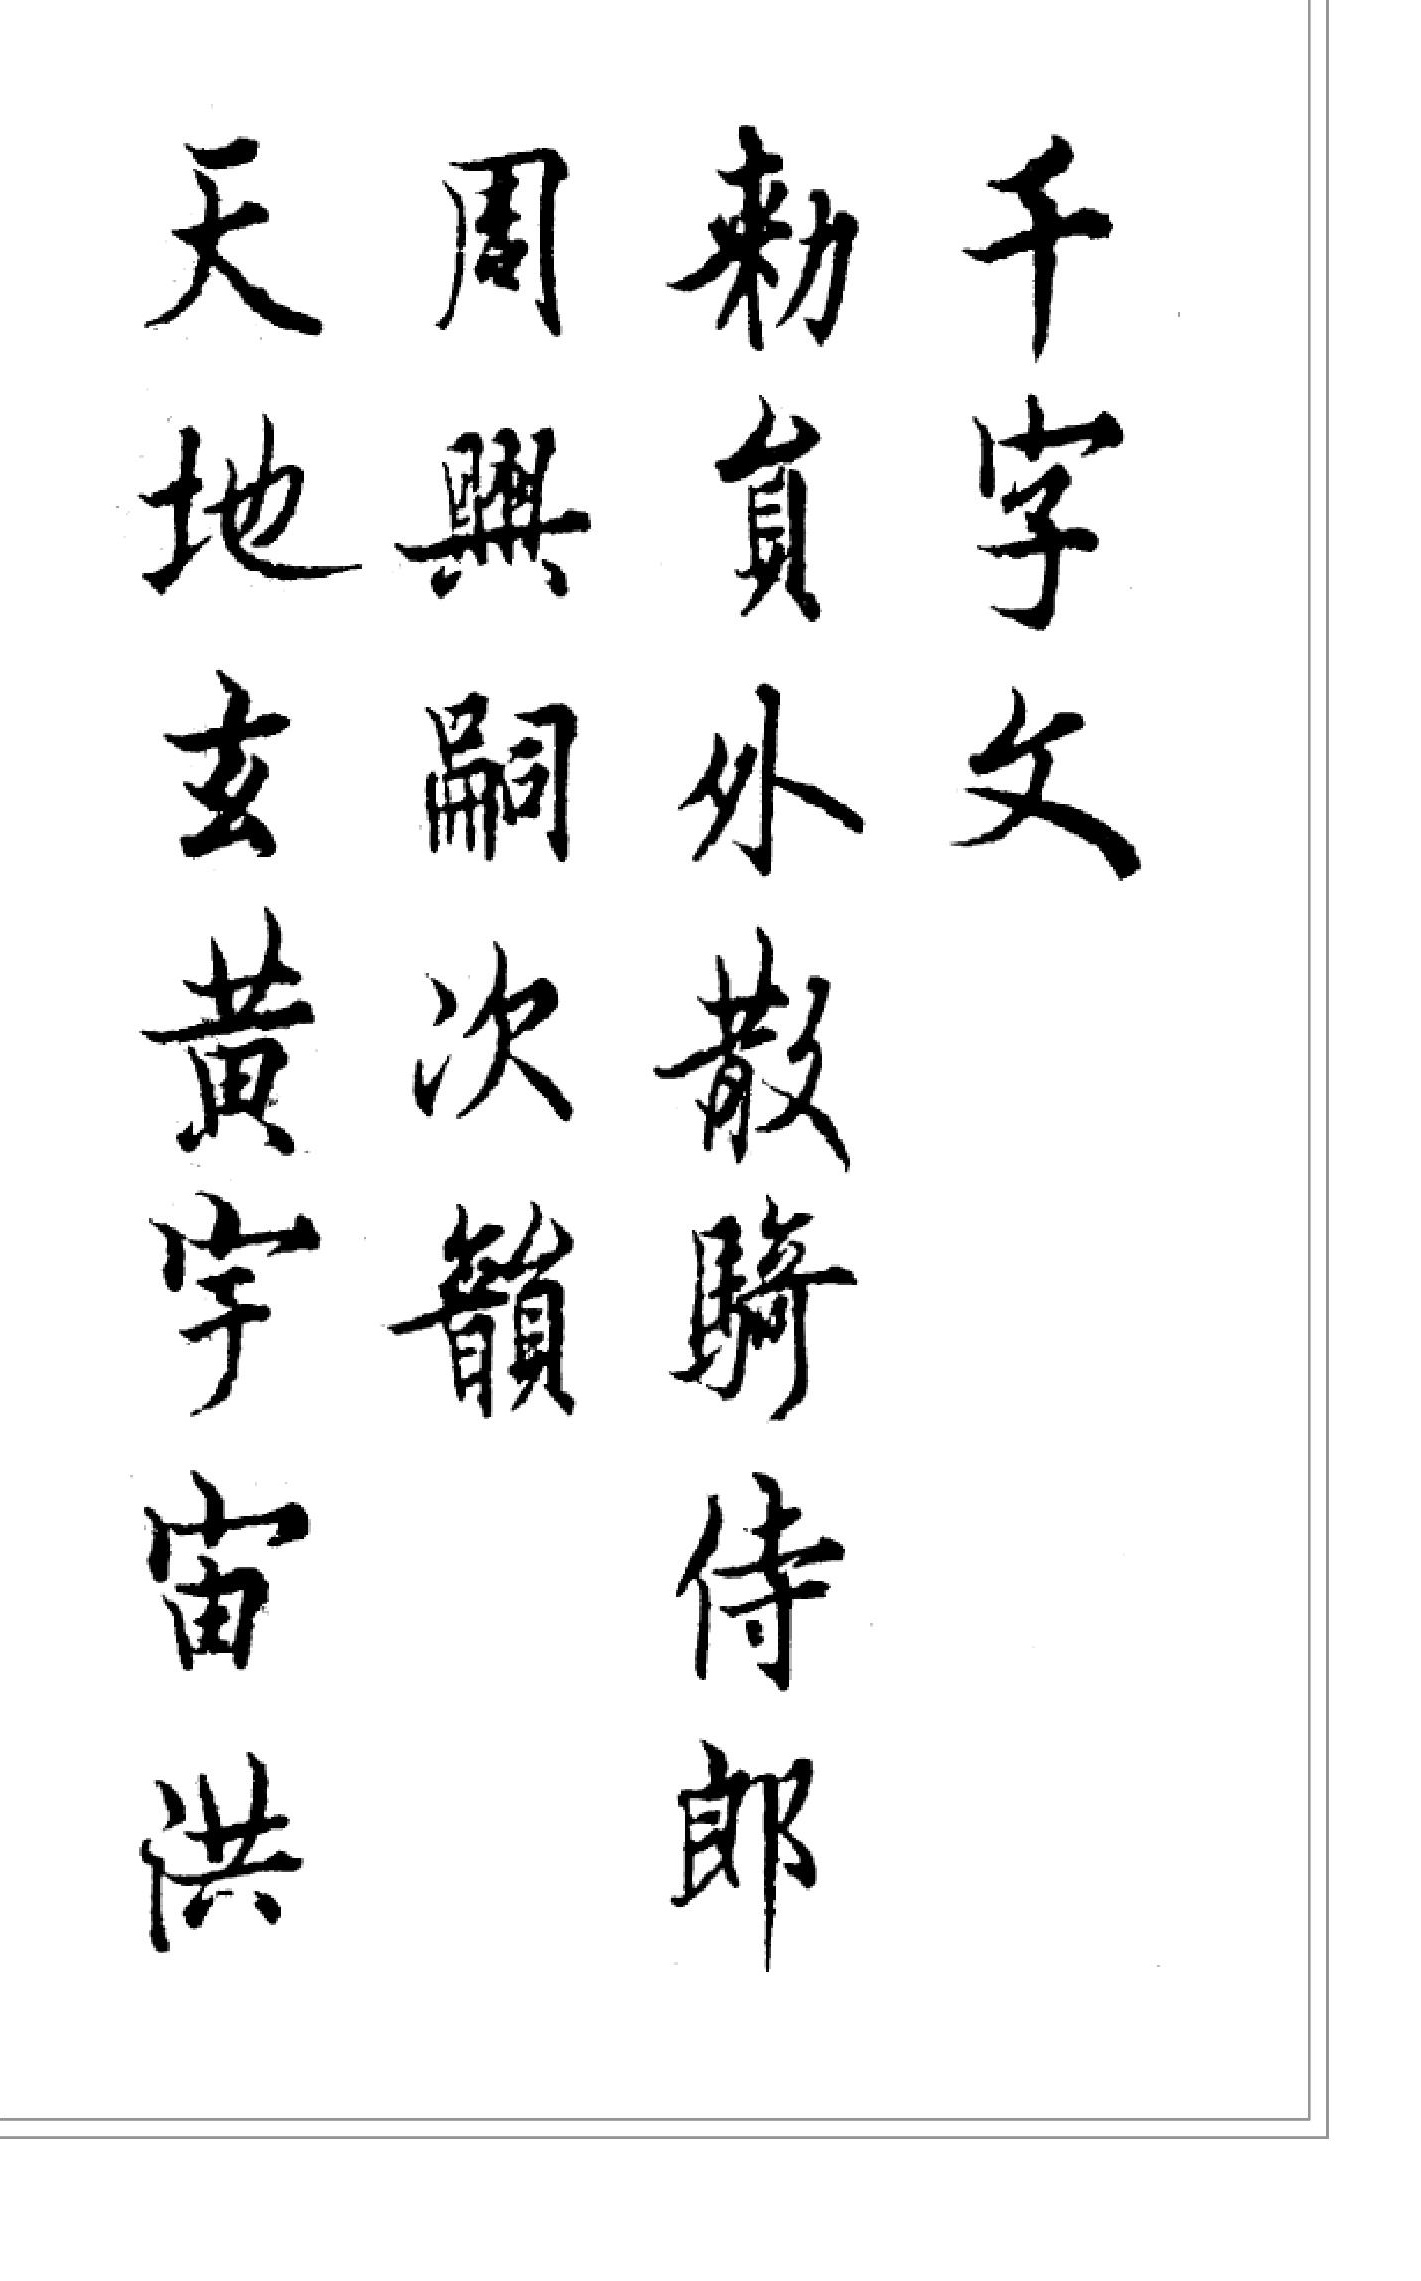 千字文
勑員外散騎侍郎
周興嗣次韻
天地玄黃宇宙洪